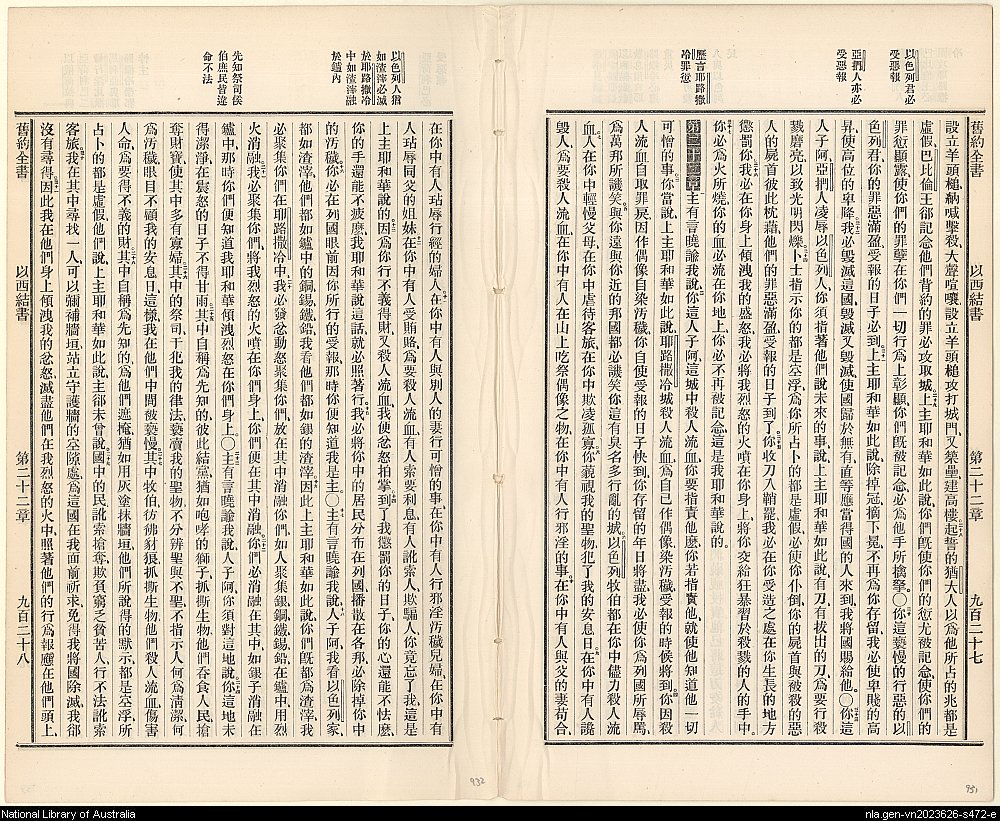 以色列君必
受惡報
亞捫人亦必
受惡報
歷言耶路撒
冷罪愆
舊約全書 以西結書 第二十二章 九百二十七
設立羊頭槌吶喊擊殺大聲喧嚷設立羊頭槌攻打城門又築壘建高樓起誓的猶大人以為他所占的兆都是
虛假巴比倫王卻記念他們背約的罪必攻取城上主耶和華如此說你們旣使你們的愆尤被記念使你們的
罪愆顯露使你們的罪孽在你們一切行為上彰顯你們旣被記念必為他手所擒拏○你這褻慢的行惡的以
色列君你的罪惡滿盈受報的日子必到上主耶和華如此說除掉冠摘下冕不再為你存留我必使卑賤的高
昇使高位的卑降我必毀滅這國毀滅又毀滅使國歸於無有直等應當得國的人來到我將國賜給他○你這
人子阿亞捫人凌辱以色列人你須指著他們說未來的事說上主耶和華如此說有刀有拔出的刀為要行殺
戮磨亮以致光明閃爍卜士指示你的都是空浮為你所占卜的都是虛假必使你仆倒你的屍首與被殺的惡
人的屍首彼此枕藉他們的罪惡滿盈受報的日子到了你收刀入鞘罷我必在你受造之處在你生長的地方
懲罰你我必在你身上傾洩我的盛怒我必將我烈怒的火噴在你身上將你交給狂暴習於殺戮的人的手中
你必為火所燒你的血必流在你地上你必不再被記念這是我主耶和華說的
第二十二章 主有言曉諭我說你這人子阿這城中殺人流血你要指責他麽你若指責他就使他知道他一切
可憎的事你當說上主耶和華如此說耶路撒冷城殺人流血為自己作偶像染汚穢受報的時候將到你因殺
人流血自取罪戾因作偶像自染汚穢你自使受報的日子快到你存留的年日將盡我必使你為列國所辱罵
為萬邦所譏笑與你遠與你近的那國都必譏笑你這有臭名多行亂的城以色列牧伯都在你中儘力殺人流
血人在你中輕慢父母在你中虐待客旅在你中欺凌孤寡你藐視我的聖物犯了我的安息日在你中有人讒
毀人為要殺人流血在你中有人在山上吃祭偶像之物在你中有人行邪淫的事在你中有人與父的妻苟合
以色列人猶
如渣滓必滅
於耶路撒冷
中如渣滓融
於鑪內
先知祭司侯
伯庶民皆違
命不法
在你中有人玷辱行經的婦人在你中有人與別人的妻行可憎的事在你中有人行邪淫汚穢兒婦在你中有
人玷辱同父的姐妹在你中有人受賄賂為要殺人流血有人索要利息有人訛索人欺騙人你竟忘了我這是
上主耶和華說的因為你行不義得財又殺人流血我使忿怒拍掌到了我懲罰你的日子你的心還能不怯麽
你的手還能不疲麽我耶和華說這話就必照著行我必將你中的居民分布在列國播散在各邦必除掉你中
的汚穢你必在列國眼前因你所行的受報那時你便知道我是主○主有言曉諭我說人子阿我看以色列家
都如渣滓他們都如鑪中的銅錫鐵鉛我看他們都如銀的渣滓因此上主耶和華如此說你們旣都為渣滓我
必聚集你們在耶路撒冷中我必發忿動怒聚集你們放在其中消融你們如人聚集銀銅鐵錫鉛在鑪中用烈
火消融我必聚集你們將我烈怒的火噴在你們身上你們便在其中消融你們必消融在其中如銀子消融在
鑪中那時你們便知道我耶和華傾洩烈怒在你們身上○主有言曉諭我說人子阿你須對這地說你這地未
得潔淨在震怒的日子不得甘雨其中自稱為先知的彼此結黨猶如咆哮的獅子抓撕生物他們吞食人民搶
奪財寶使其中多有寡婦其中的祭司干犯我的律法褻瀆我的聖物不分辨聖與不聖不指示人何為清潔何
為汚穢眼目不顧我的安息日這樣我在他們中間被褻慢其中牧伯彷彿豺狼抓撕生物他們殺人流血傷害
人命為要得不義的財其中自稱為先知的為他們遮掩猶如用灰塗抹牆垣他們所說得的默示都是空浮所
占卜的都是虛假他們說上主耶和華如此說主卻未曾說國中的民訛索搶奪欺負窮乏貧苦人行不法訛索
客旅我在其中尋找一人可以彌補牆垣站立守護牆的空隙處為這國在我面前祈求免得我將國除滅我卻
沒有尋得因此我在他們身上傾洩我的忿怒滅盡他們在我烈怒的火中照著他們的行為報應在他們頭上
舊約全書 以西結書 第二十二章 九百二十八
932
931
National Library of Australia
nla.gen-vn2023626-s472-e